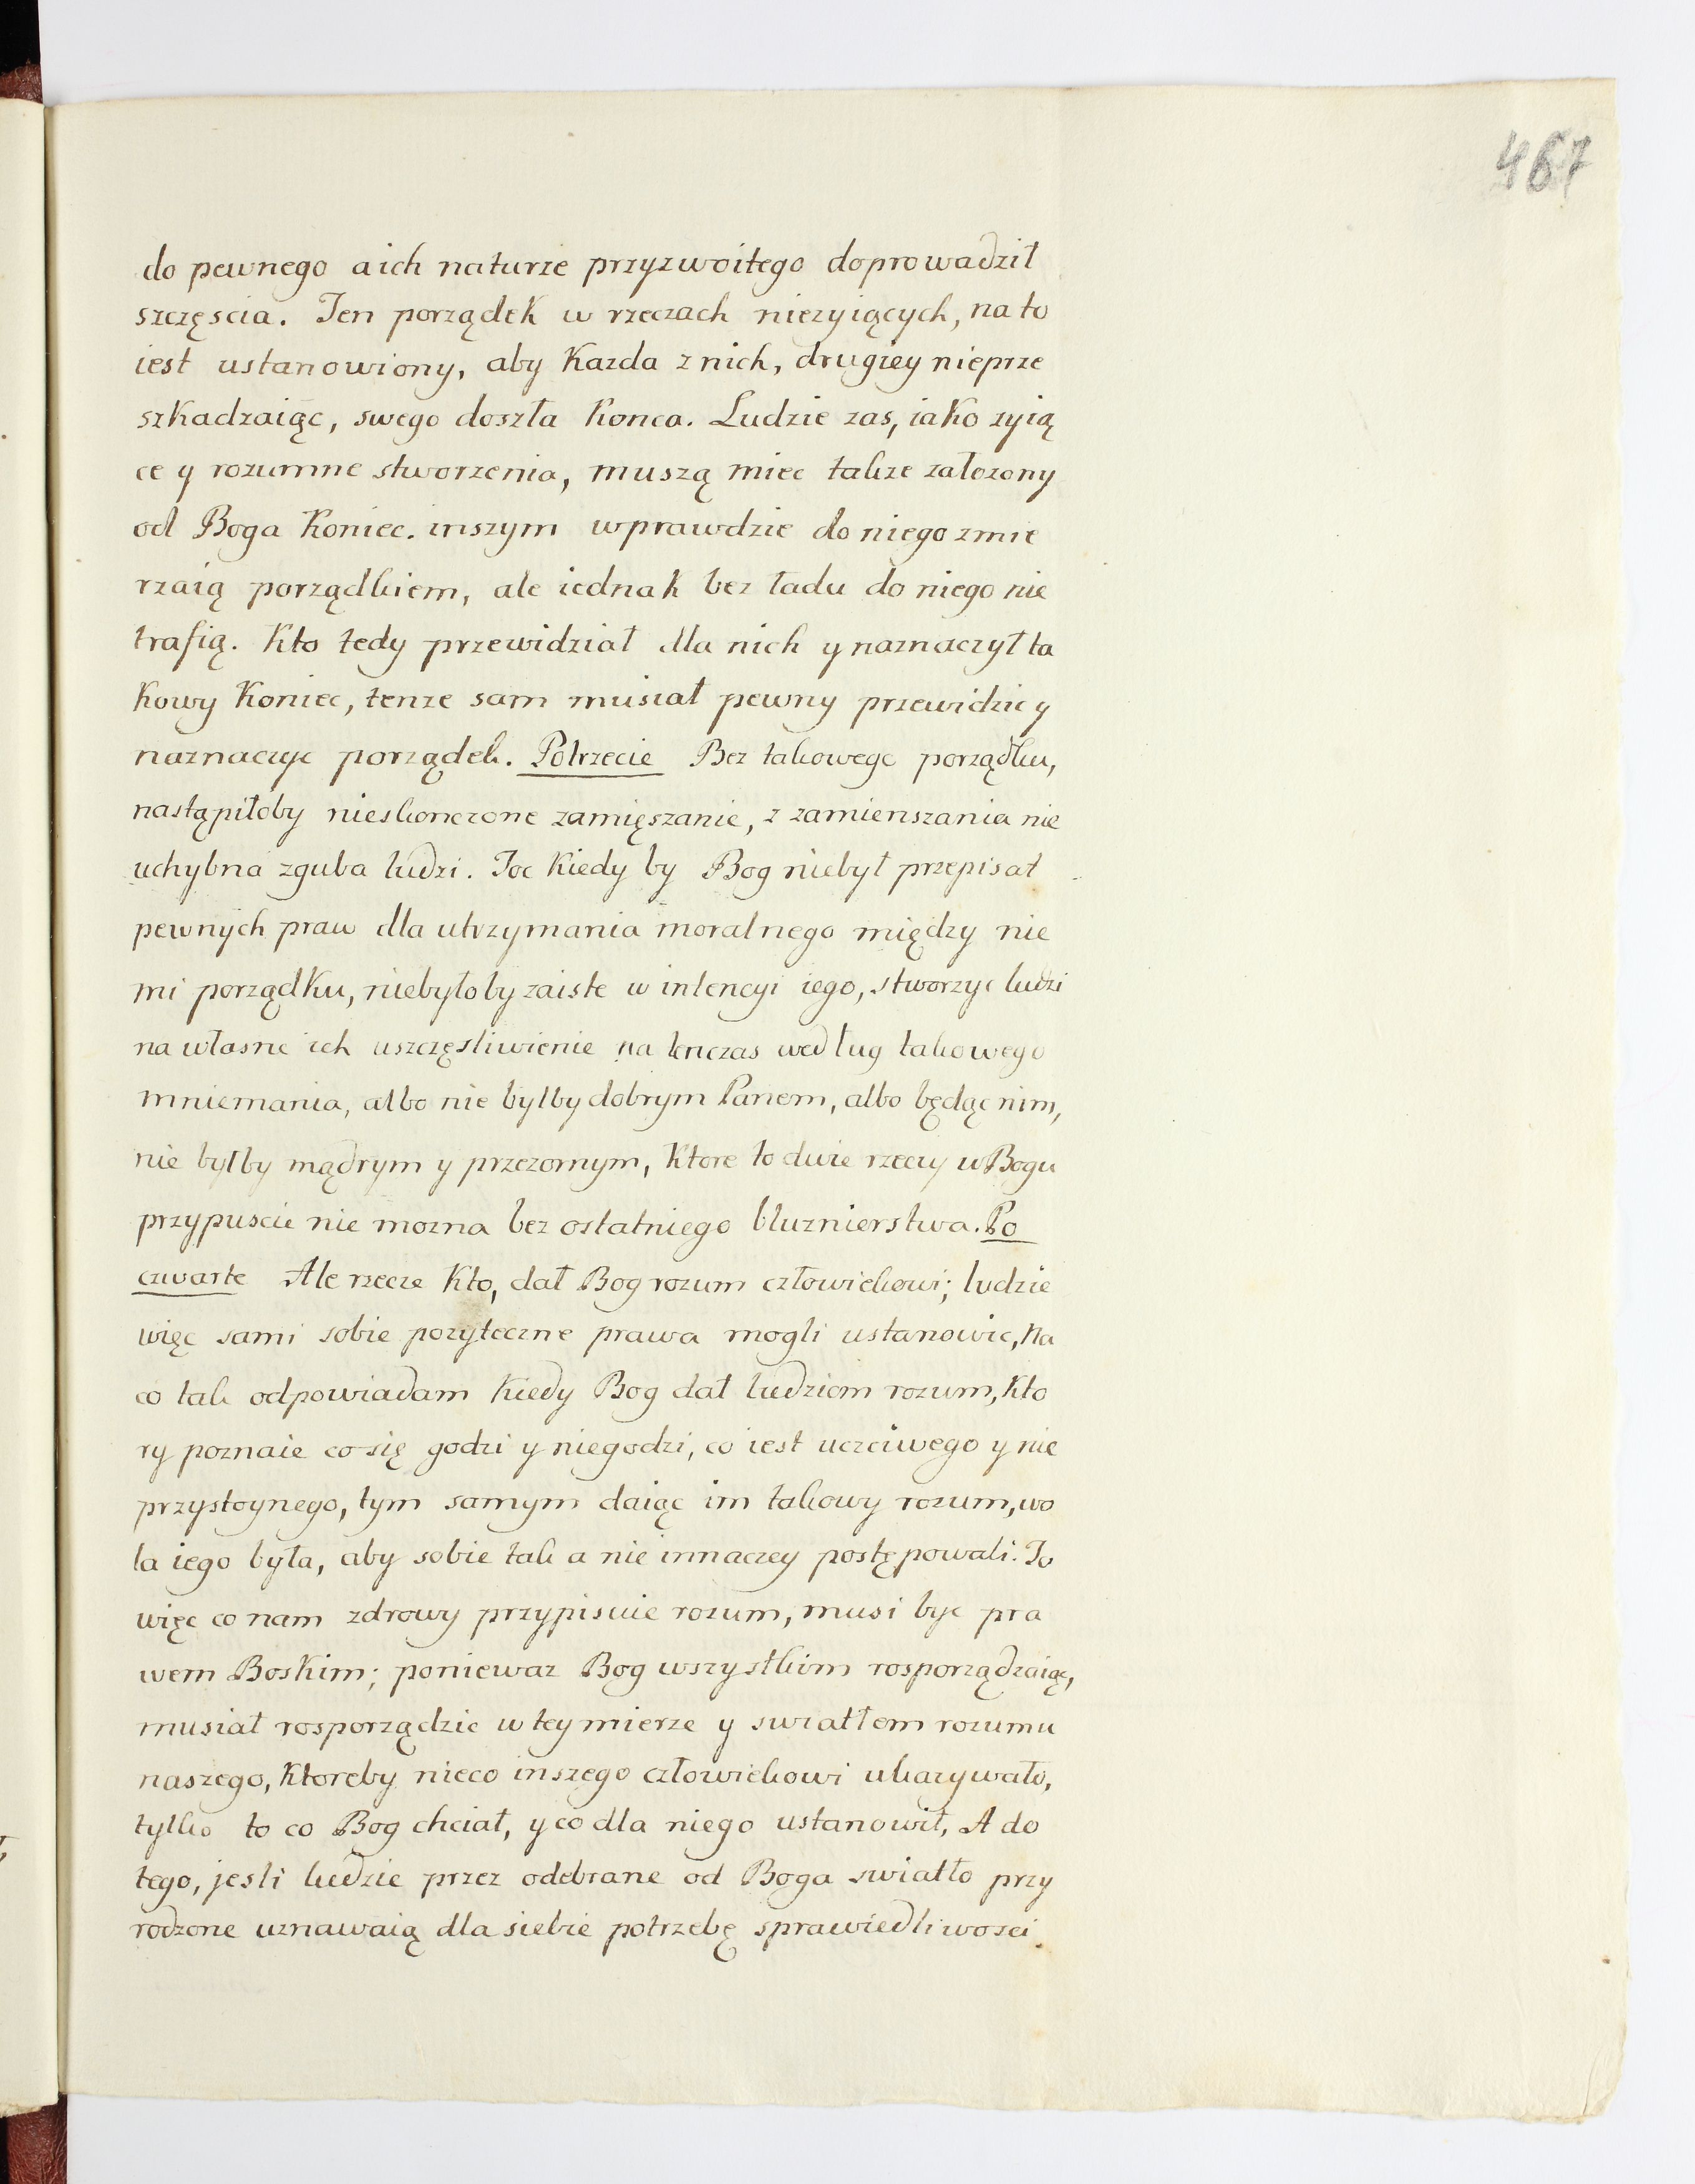 467
do pewnego a ich naturze przyzwoitego doprowadził
szczęscia. Ten porządek w rzeczach nieżyiących, na to
iest ustanowiony, aby Kazda z nich, drugiey nieprze
szkadzaiąc, swego doszła Konca. Ludzie zas, iako zyią
ce y rozumne stworzenia, muszą miec takze załozony
od Boga Koniec. inszym wprawdzie do niego zmie
rzaią porządkiem, ale iednak bez ładu do niego nie
trafią. Kto tedy przewidział dla nich y naznaczył ta
Kowy Koniec, tenze sam musiał pewny przewidzic y
naznaczyc porządek. Potrzecie Bez takowego porządku,
nastąpiłoby nieskonczone zamięszanie, z zamienszania nie
uchybna zguba ludzi. Toc Kiedy by Bog niebył przepisał
pewnych praw dla utrzymania moralnego między nie
mi porządku, niebyłoby zaiste w intencyi iego, stworzyc ludzi
na własne ich uszczęsliwienie na tenczas według takowego
mniemania, albo nie byłby dobrym Panem, albo będąc nim,
nie byłby mądrym y przezornym, Ktore to dwie rzeczy w Bogu
przypuscic nie mozna bez ostatniego bluznierstwa. Po
czwarte Ale rzecze Kto, dał Bog rozum człowiekowi; ludzie
więc sami sobie pozyteczne prawa mogli ustanowic, Na
co tak odpowiadam Kiedy Bog dał ludziom rozum, Kto
ry poznaie co się godzi y niegodzi, co iest uczciwego y nie
przystoynego, tym samym daiąc im takowy rozum, wo
la iego była, aby sobie tak a nie innaczey postępowali. To
więc co nam zdrowy przypisuie rozum, musi byc pra
wem Boskim; poniewaz Bog wszystkim rosporządzaiąc,
musiał rosporządzic w tey mierze y swiatłem rozumu
naszego, Ktoreby nieco inszego człowiekowi ukazywało,
tylko to co Bog chciał, y co dla niego ustanowił, A do
tego, jesli ludzie przez odebrane od Boga swiatło przy
rodzone uznawaią dla siebie potrzebę sprawiedliwosci